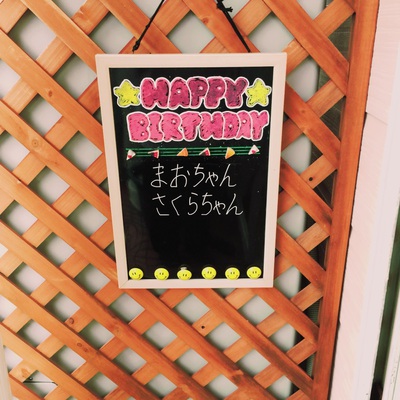 HAPPY
BIRTHDAY
まおちゃん
さくらちゃん